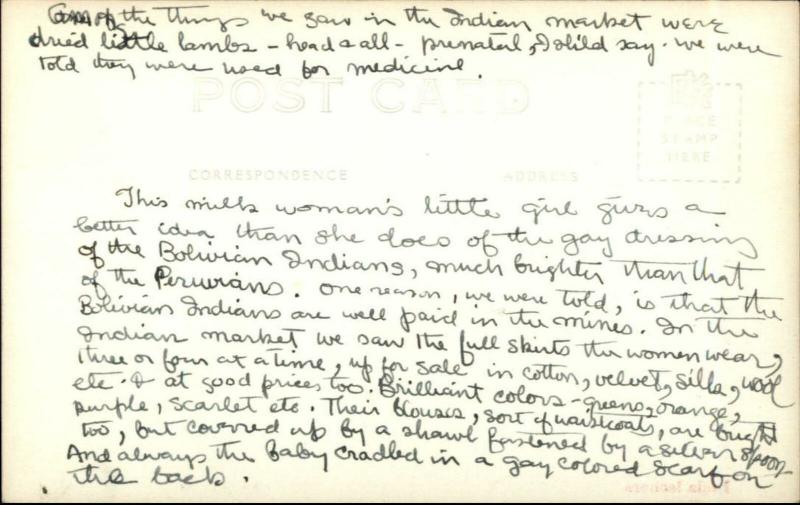 Some of the things we saw in the Indian market were
dried little lambs - head & all - prenatal, I shld say. We were
told they were used for medicine.
POST CARD
PLACE
STAMP
HERE
CORRESPONDENCE
ADDRESS
This milk woman's little girl gives a
better idea than she does of the gay dressing
of the Bolivian Indians, much brighter than that
of the Peruvians. One reason, we were told, is that the
Bolivian Indians are well paid in the mines. In the
Indian market we saw the full skirts the women wear,
three or four at a time, up for sale in cotton, velvet, silk, wool
etc. & at good prices too. Brilliant colors - greens, orange,
purple, scarlet etc. Their blouses, sort of waistcoats, are bright
too, but covered up by a shawl fastened by a silver spoon.
And always the baby cradled in a gay colored scarf on
the back.